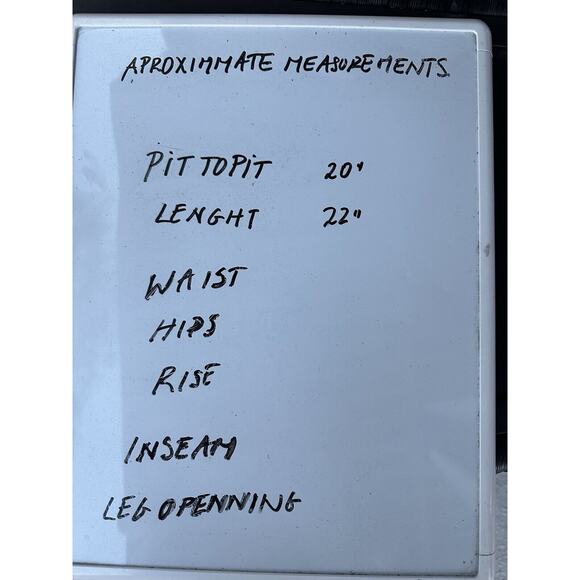 APROXIMMATE MEASUREMENTS
PIT TO PIT 20"
LENGHT 22"
WAIST
HIPS
RISE
INSEAM
LEG OPENNING